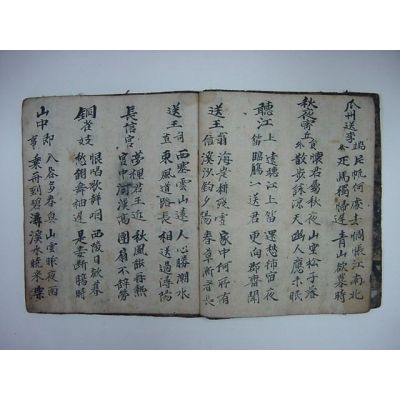 瓜州送李端公
片帆何處去 惆悵江南北
匹馬獨歸遲 青山欲暮時
秋夜寄丘員外
懷君屬秋夜 山空松子落
散步詠涼天 幽人應未眠
聽江上笛
遠聽江上笛 還愁獨宿夜
臨觴一送君 更向郡齋聞
送王翁信
海岸耕殘雪 家中何所有
溪沙釣夕陽 春草漸看長
送王司直
西塞雲山遠 人心勝潮水
東風道路長 相送過潯陽
長信宮
夢裡君王近 秋風能再熱
宮中河漢高 團扇不辭勞
銅雀妓
恨唱歌聲咽 西陵日欲暮
愁翻舞袖遲 是妾斷腸時
山中即事
入谷多春興 山雲昨夜雨
乘舟到碧潯 溪水曉來深